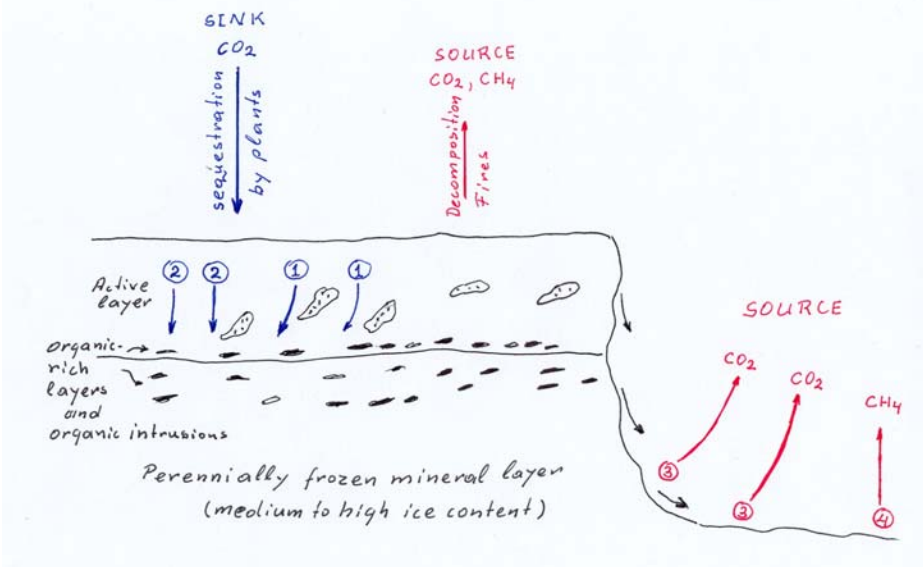 SINK
CO2
sequestration
by plants
SOURCE
CO2, CH4
Decomposition
Fires
Active
layer
2
2
1
1
organic-
rich
layers
and
organic intrusions
Perennially frozen mineral layer
(medium to high ice content)
SOURCE
CO2
CO2
CH4
3
3
4